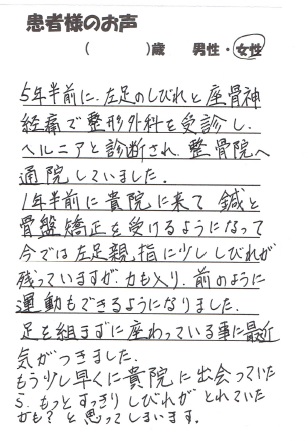 患者様のお声
(　　　)歳　男性・女性
5年半前に、左足のしびれと座骨神
経痛で整形外科を受診し、
ヘルニアと診断され、整骨院へ
通院していました。
1年半前に貴院に来て鍼と
骨盤矯正を受けるようになって
今では左足親指に少ししびれが
残っていますが、力も入り、前のように
運動もできるようになりました。
足を組まずに座わっている事に最近
気がつきました。
もう少し早くに貴院に出会っていた
ら、もっとすっきりしびれがとれていた
かも?と思ってしまいます。